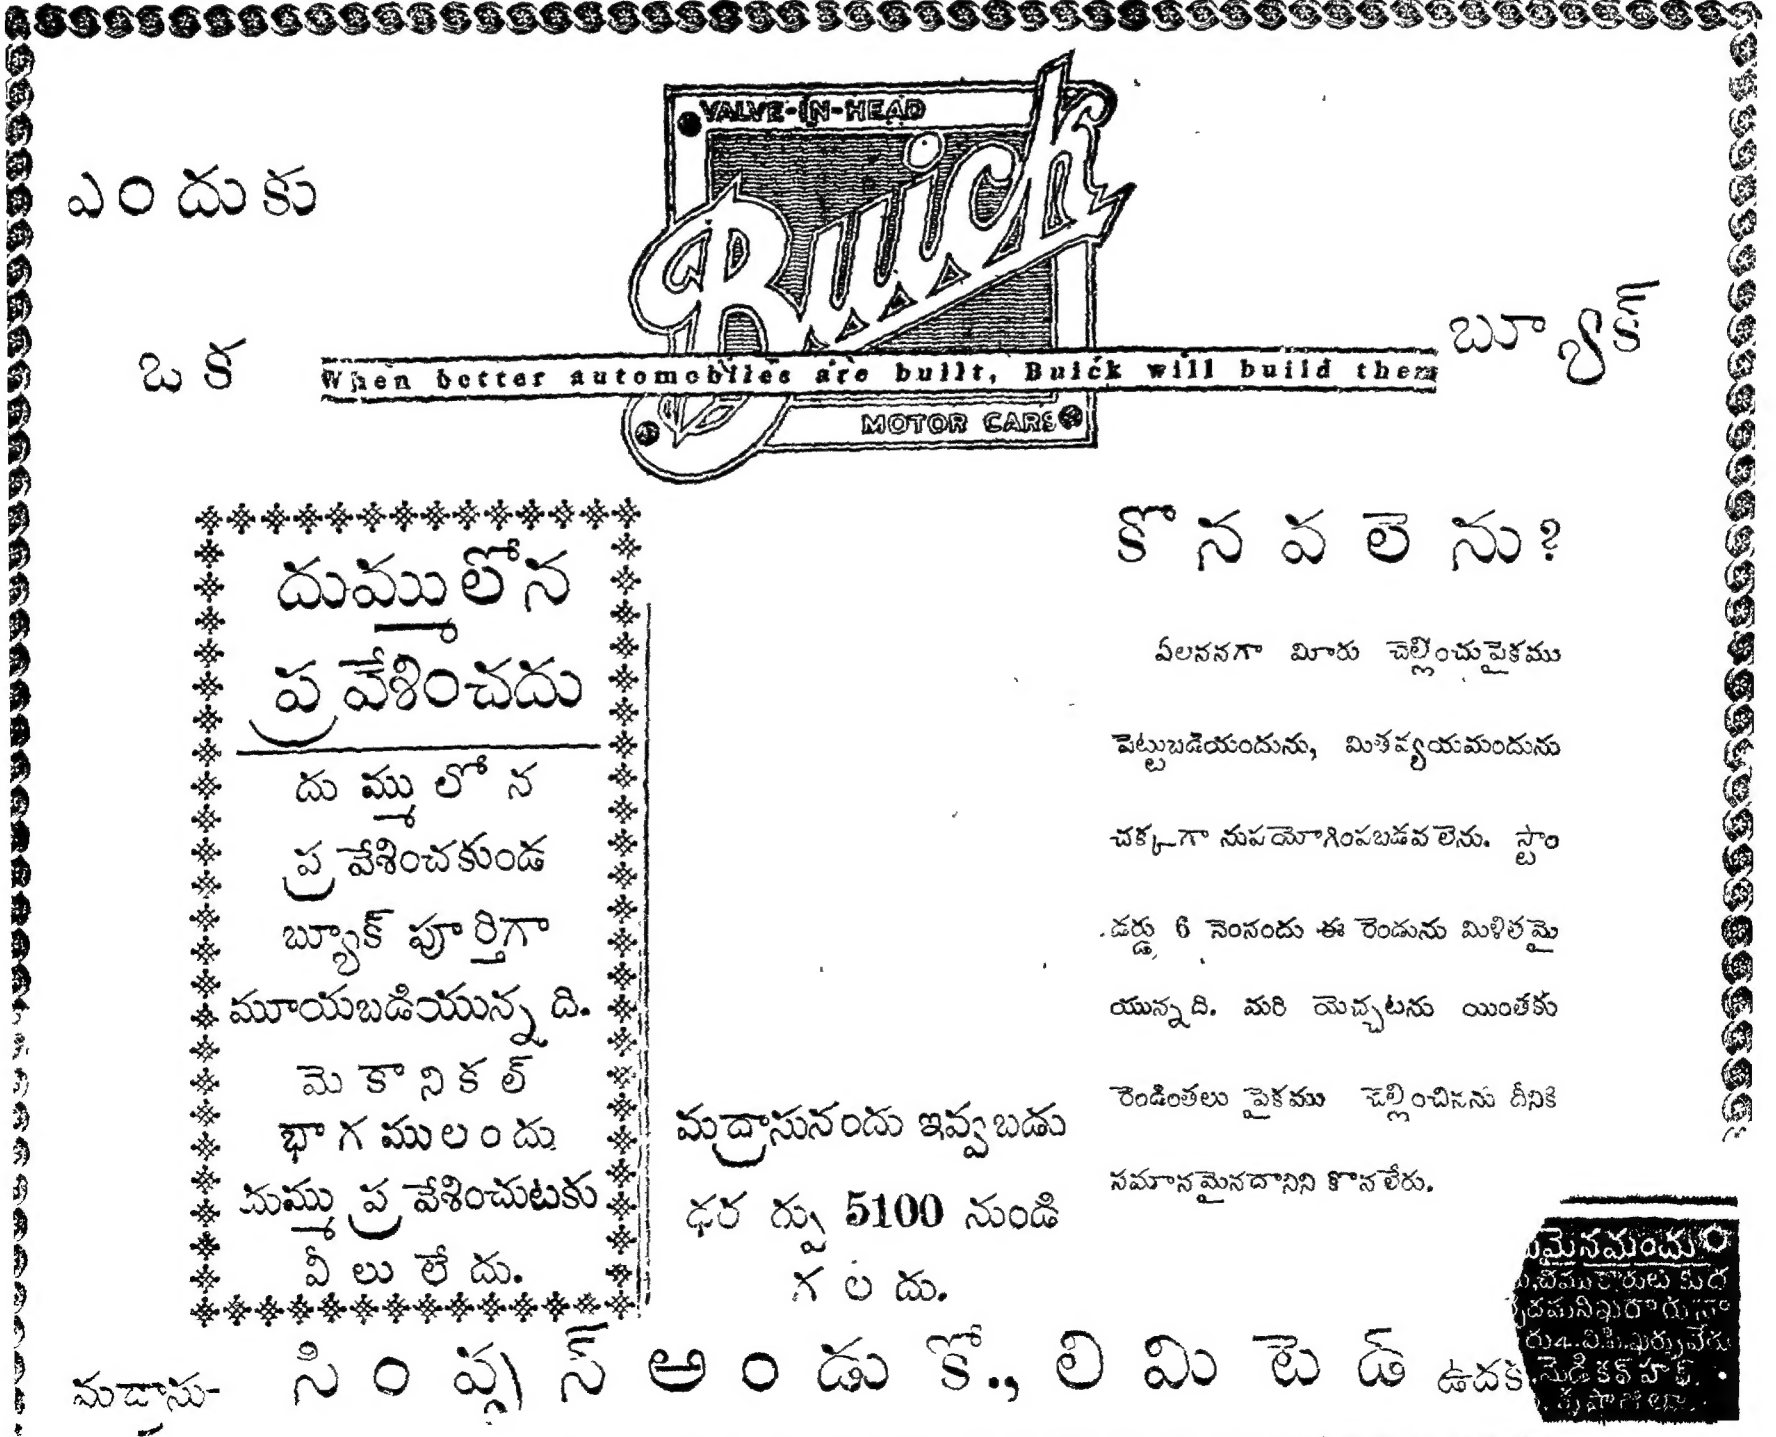 VALVE-IN-HEAD
Buick
When better automobiles are built, Buick will build them
MOTOR CARS
ఎందుకు
ఒక
బ్యూక్
కొనవలెను?
దుమ్ములోన
ప్రవేశించదు
దుమ్ములోన
ప్రవేశించకుండ
బ్యూక్ పూర్తిగా
మూయబడియున్నది.
మెకానికల్
భాగములందు
దుమ్ము ప్రవేశించుటకు
వీలులేదు.
ఏలననగా మీరు చెల్లించుపైకము
పెట్టుబడియందును, మితవ్యయమందును
చక్కగా నుపయోగింపబడవలెను. స్టాం
డర్డు 6 నెంనందు ఈ రెండును మిళితమై
యున్నది. మరి యెచ్చటను యింతకు
రెండింతలు పైకము చెల్లించినను దీనికి
సమానమైనదానిని కొనలేరు.
మద్రాసునందు ఇవ్వబడు
ధర 5100 నుండి
గలదు.
మద్రాసు- సింప్సన్ అండు కో., లిమిటెడ్ ఉదక